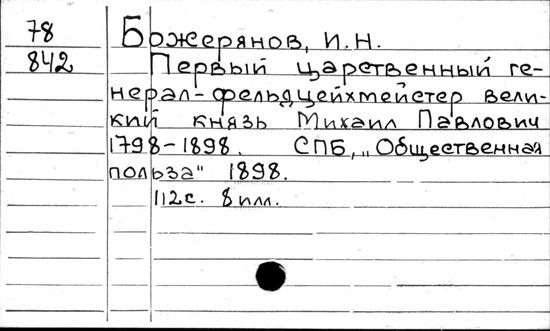 78 Божерянов, И.Н.
842 Первый царственный ге-
нерал-фельдцейхмейстер вели-
кий князь Михаил Павлович
1798-1898. СПБ, „Общественная
польза" 1898.
112с. 8 илл.